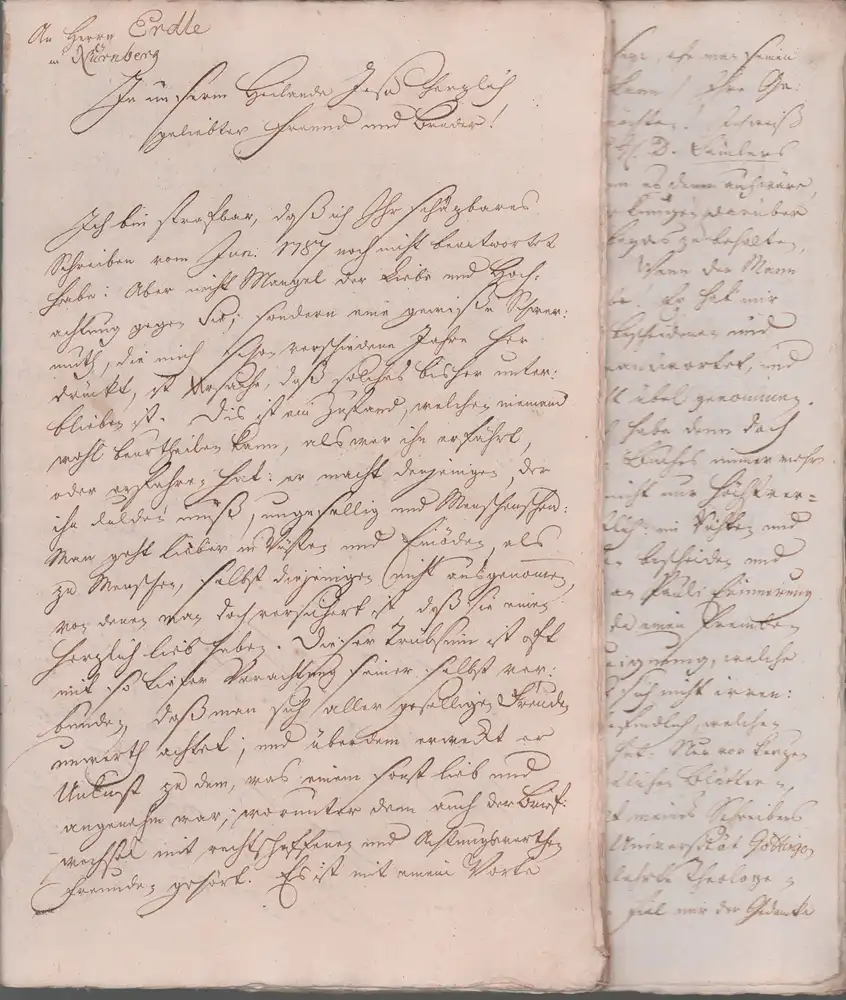 An Herrn Erdle
in Nürnberg
In unserm Heilande Jesu herzlich
geliebter Freund und Bruder!
Ich bin strafbar, daß ich Ihr schäzbares
Schreiben vom Jun. 1787 noch nicht beantwortet
habe: Aber nicht Mangel der Liebe und Hoch:
achtung gegen Sie; sondern eine gewisse Schwer:
muth, die mich schon verschiedene Jahre her
drückt, ist Ursache, daß solches bisher unter:
blieben ist. Dis ist ein Zustand, welchen niemand
wohl beurtheilen kann, als wer ihn erfährt,
oder erfahren hat: er macht denjenigen, der
ihn dulden muß, ungesellig und Menschenscheu:
Man geht lieber in Wüsten und Einöden, als
zu Menschen, selbst diejenigen nicht ausgenommen,
von denen man doch versichert ist, daß sie einen
herzlich lieb haben. Dieser Trübsinn ist oft
mit so tiefer Verachtung seiner selbst ver:
bunden, daß man sich aller geselligen Freuden
unwerth achtet; und überdem erweckt er
Unlust zu dem, was einem sonst lieb und
angenehm war; worunter denn auch der Brief:
wechsel mit rechtschaffenen und Achtungswerthen
Freunden gehört. Es ist mit einem Worte
ehe man seinen
kann! Ihre Ge:
D. Semlers
es denn auch wäre,
darüber
zu behalten,
Wenn der Mann
Er hat mir
bescheiden und
beantwortet, und
übel genommen.
habe denn doch
Buches immer mehr
nicht nur höchst ver=
und
bescheiden und
an Pauli Erinnerung
einen Fremden
welche
sich nicht irren:
welchen
hat. Nur vor kurzem
Blättern,
meines Schreibens
Universität Göttingen
Theologen
fiel mir der Gedanke